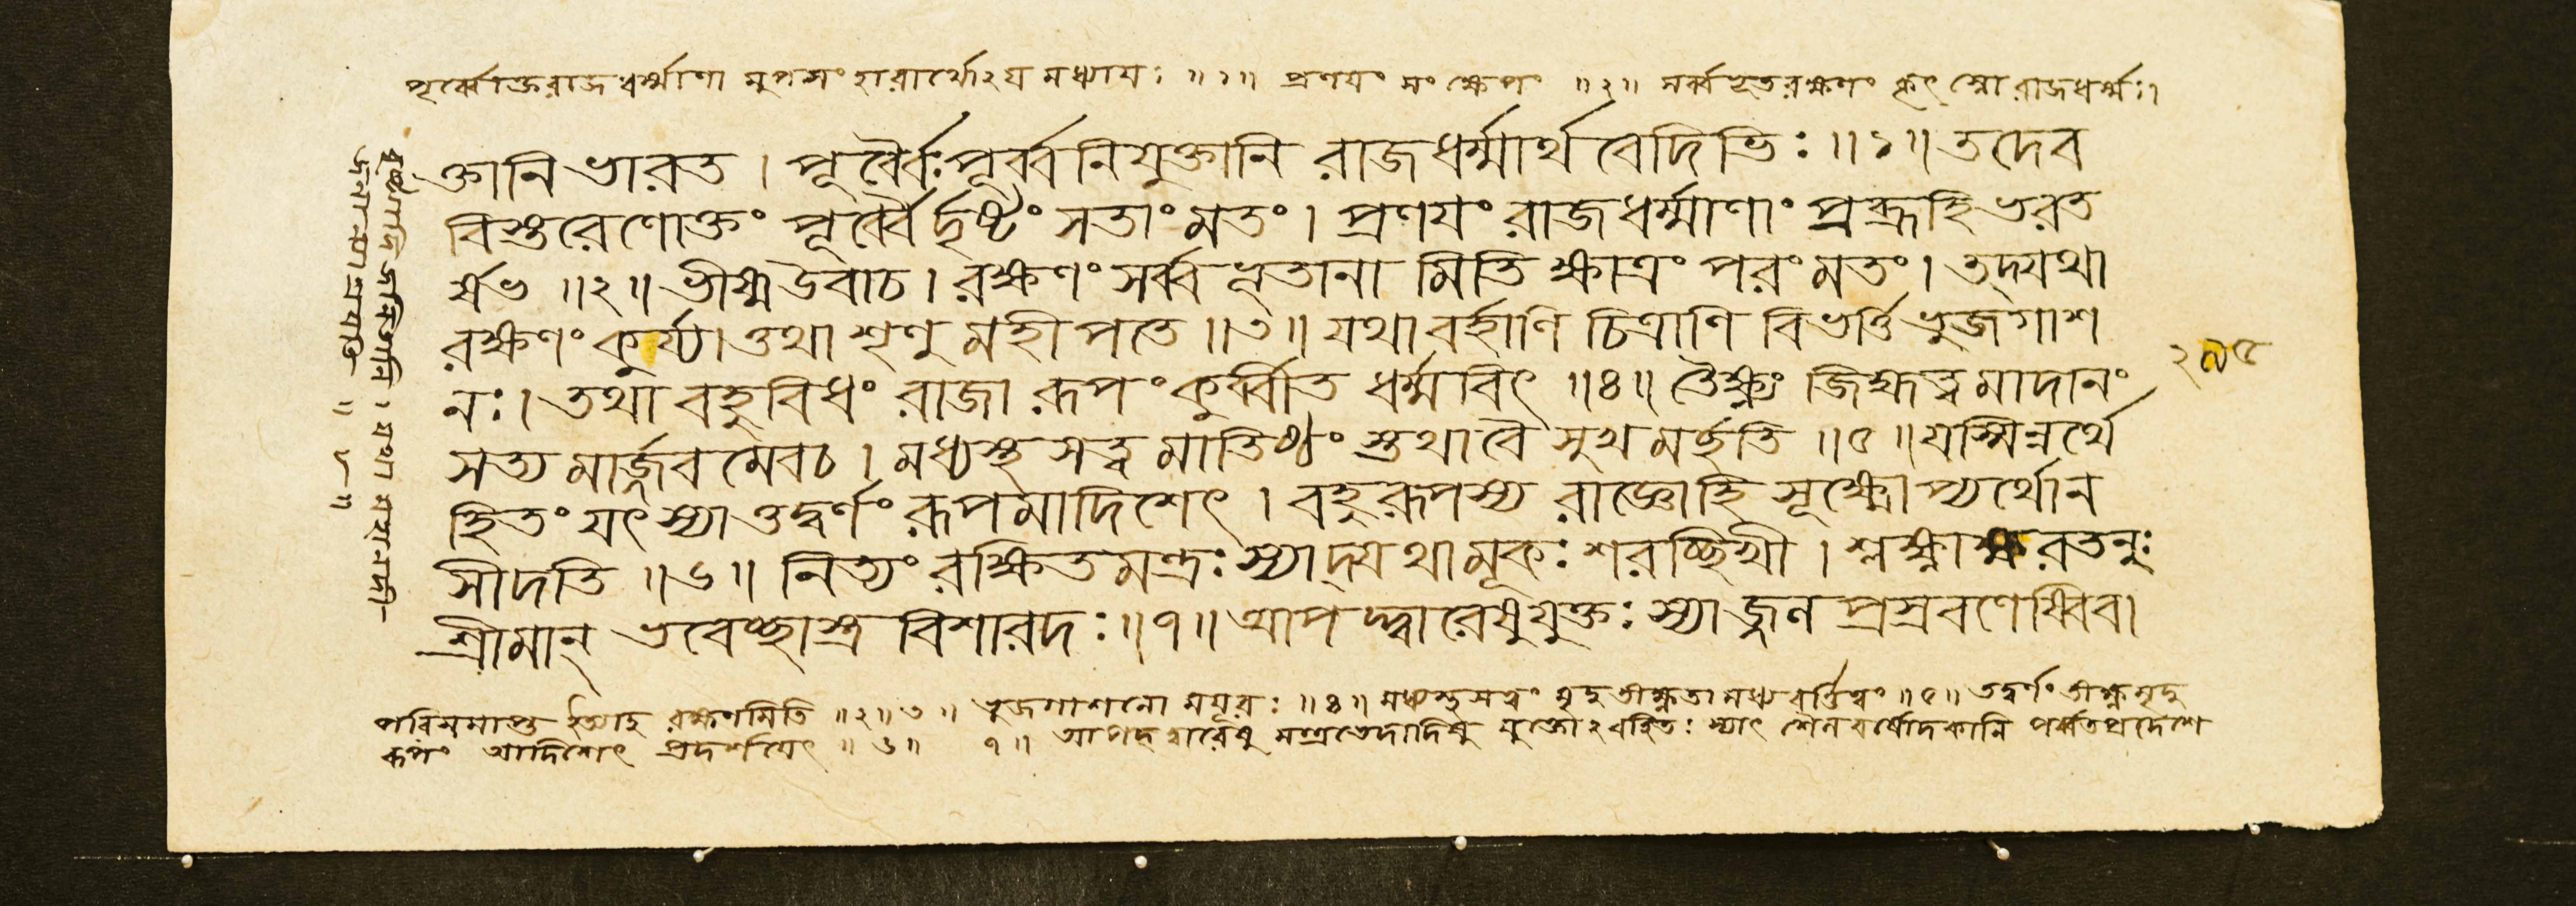 পূর্ব্বোক্তরাজধর্ম্মাণা মুপসংহারার্থোঽয মধ্যাযঃ ॥১॥ প্রণযং সংক্ষেপং ॥২॥ সর্ব্বভূতরক্ষণং কৃৎস্নো রাজধর্ম্মঃ।
ক্তানি ভারত । পূর্ব্বৈঃ পূর্ব্বনিযুক্তানি রাজধর্ম্মার্থবেদিভিঃ ॥১॥ তদেব
বিস্তরেণোক্তং পূর্ব্বৈর্দৃষ্টং সতাং মতং । প্রণযং রাজধর্ম্মাণাং প্রব্রূহি ভরত
র্ষভ ॥২॥ ভীষ্ম উবাচ । রক্ষণং সর্ব্বভূতানা মিতি ক্ষাত্রং পরং মতং । তদ্যথা
রক্ষণং কুর্য্যাত্তথা শৃণু মহীপতে ॥৩॥ যথা বর্হাণি চিত্রাণি বিভর্ত্তি ভুজগাশ
নঃ । তথা বহুবিধং রাজা রূপং কুর্ব্বীত ধর্ম্মবিৎ ॥৪॥ তৈক্ষ্ণ্যং জিহ্মত্ব মাদানং
সত্য মার্জ্জব মেবচ । মধ্যস্থ সত্ত্ব মাতিষ্ঠং স্তথা বৈ সুখ মর্হতি ॥৫॥ যস্মিন্নর্থে
হিতং যৎ স্যাত্তদ্বর্ণং রূপমাদিশেৎ । বহুরূপস্য রাজ্ঞোহি সূক্ষ্মোপ্যর্থো ন
সীদতি ॥৬॥ নিত্যং রক্ষিতমন্ত্রঃ স্যাদ্যথা মূকঃ শরচ্ছিখী । শ্লক্ষ্ণাক্ষরতনুঃ
শ্রীমান্ ভবেচ্ছাস্ত্র বিশারদঃ ॥৭॥ আপদ্দ্বারেষু যুক্তঃ স্যা জ্জল প্রস্রবণেষ্বিব।
২৯৫
পরিসমাপ্ত ইত্যাহ রক্ষণমিতি ॥২॥৩॥ ভুজগাশনো মযূরঃ ॥৪॥ মধ্যস্থসত্বং মৃদুতীক্ষ্ণতা মধ্যবর্ত্তিত্বং ॥৫॥ তদ্বর্ণং তীক্ষ্ণমৃদু
রূপং আদিশেৎ প্রদর্শযেৎ ॥৬॥ ৭॥ আপদ্দ্বারেষু মন্ত্রভেদাদিষু যুক্তোঽবহিতঃ স্যাৎ শৈলবর্ষোদকানি পর্ব্বতপ্রদেশে